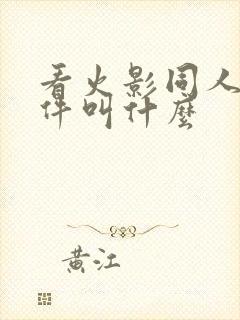 看火影同人
件叫什麼
黄江